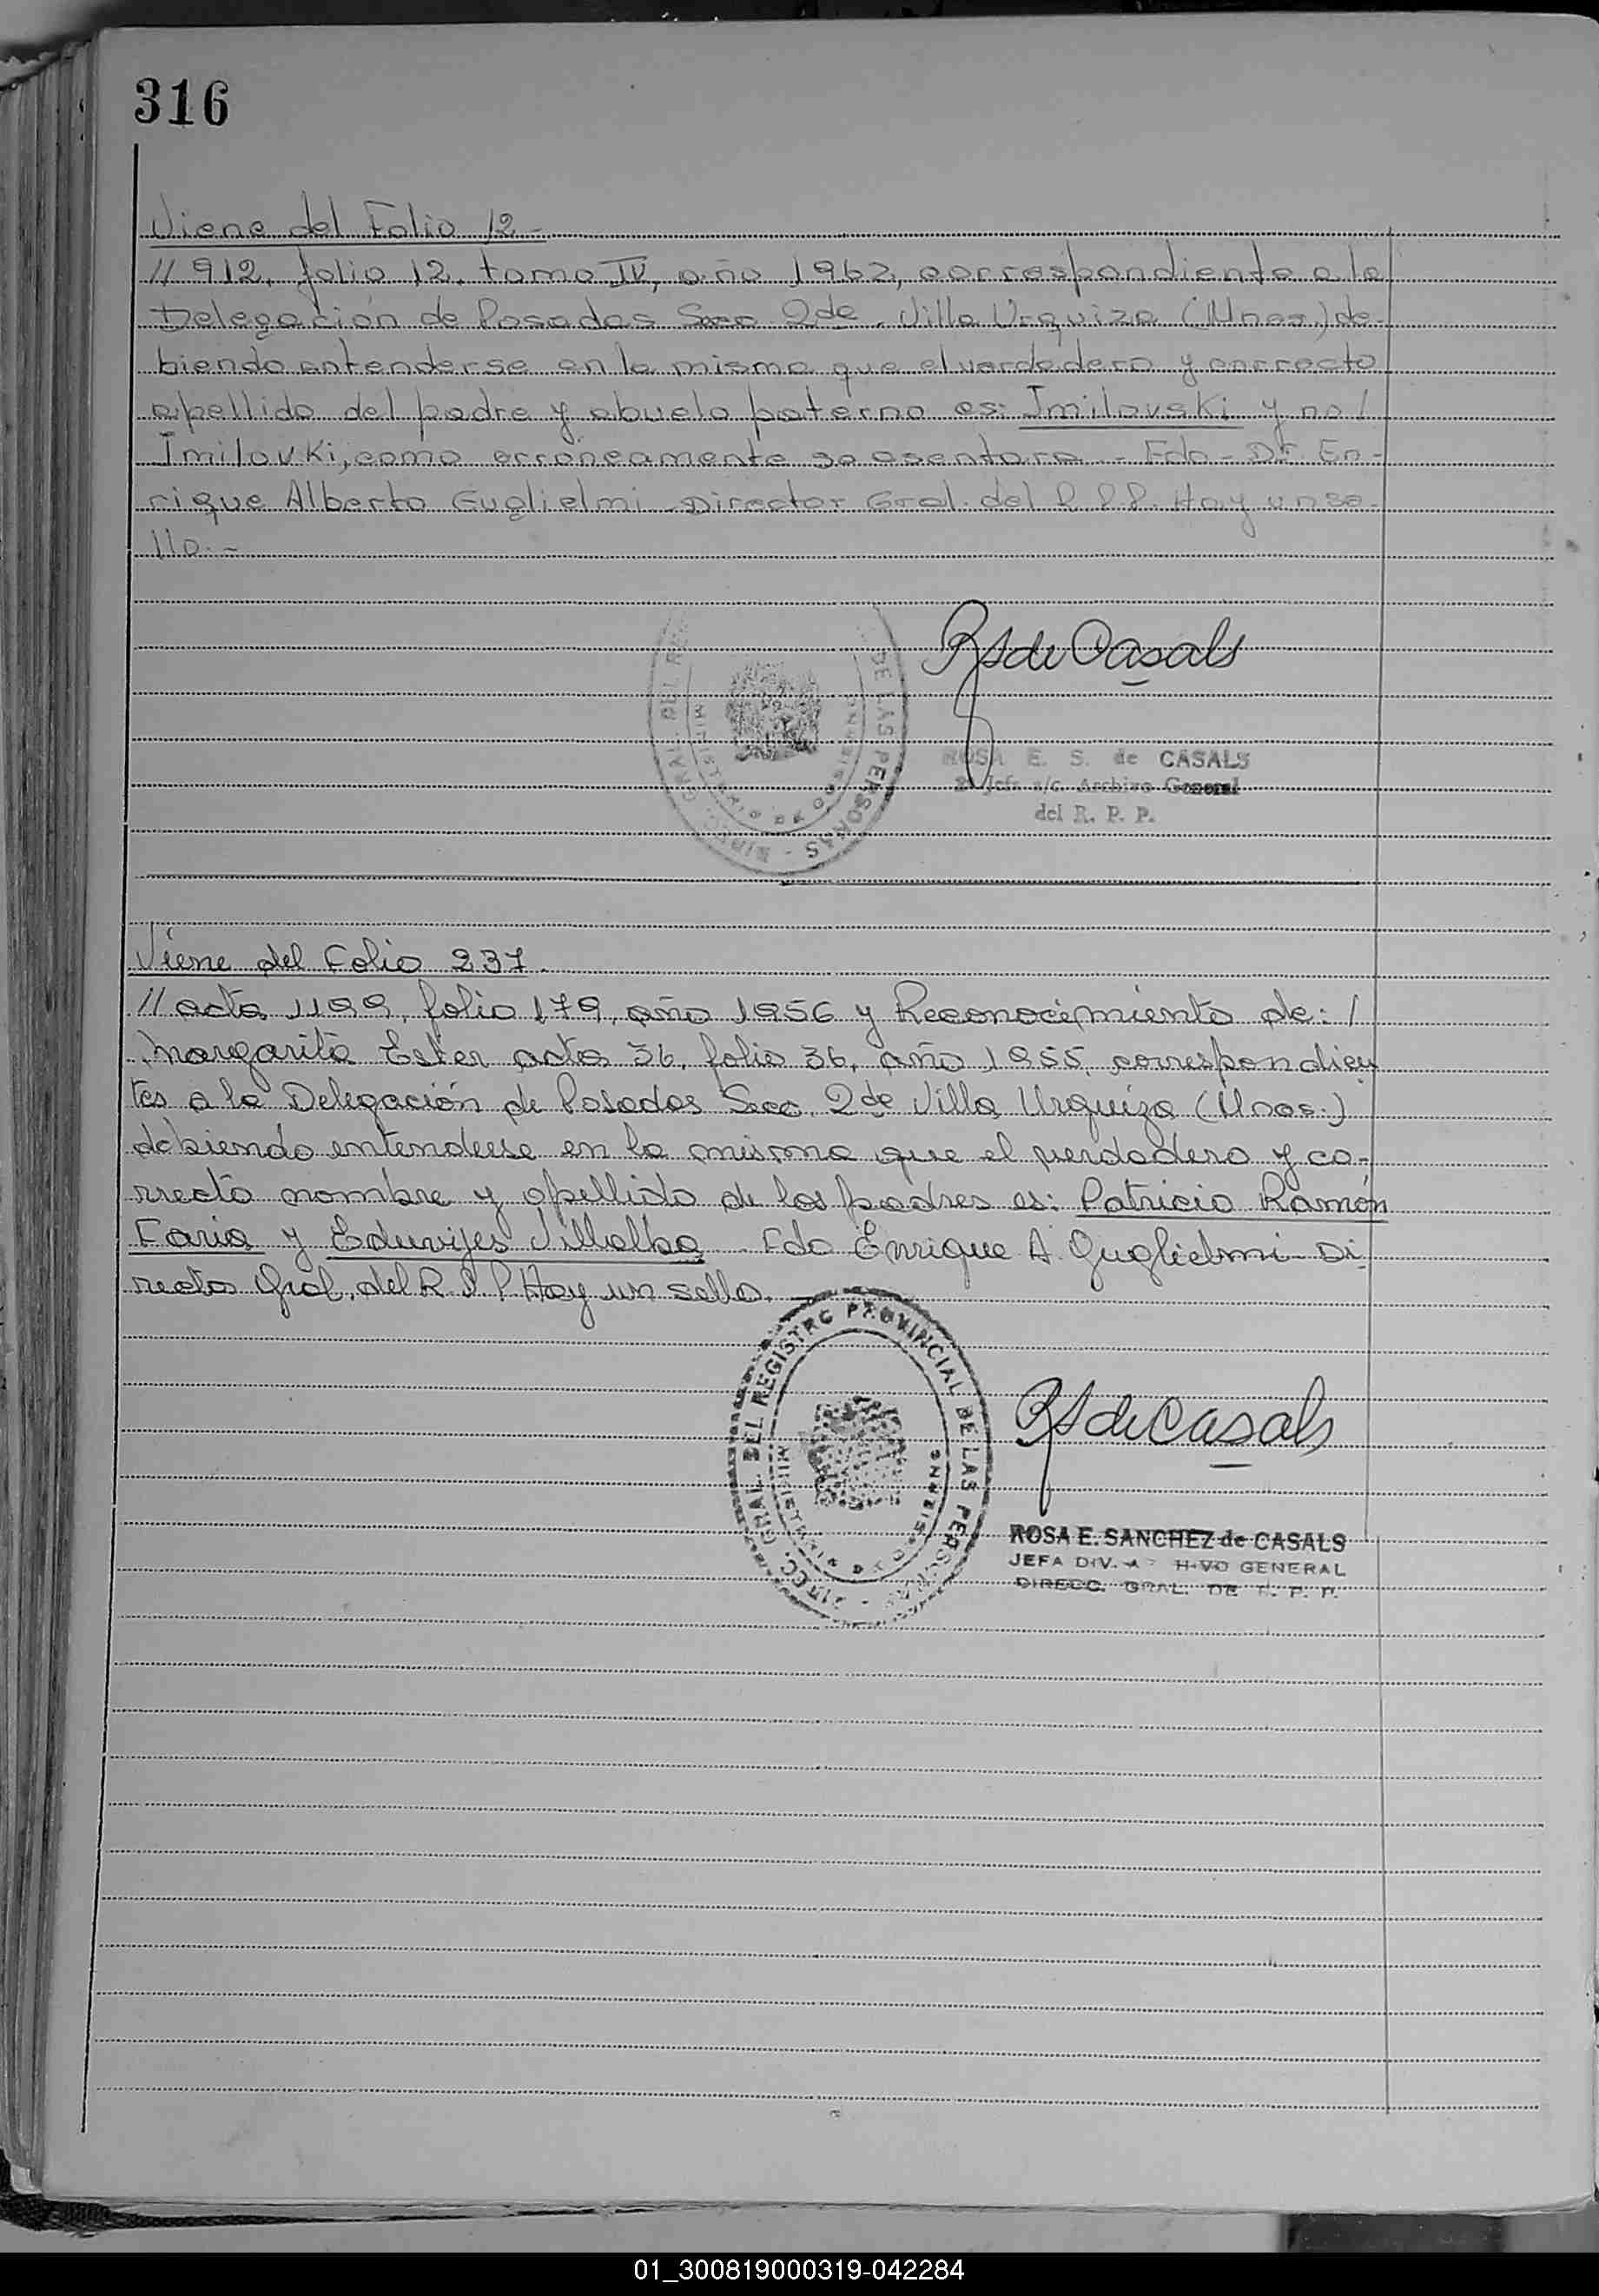 316
Viene del Folio 12.-
// 912, folio 12, tomo IV, año 1962, correspondiente a la
Delegación de Posadas Secc 2da. Villa Urquiza (Mnes.) de-
biendo entenderse en la misma que el verdadero y correcto
apellido del padre y abuelo paterno es: Imilovski y no /
Imilovki, como erróneamente se asentara.- Fdo- Dr. En-
rique Alberto Guglielmi. Director Gral. del R.P.P. Hay un se-
llo.-
RS de Casals
DEL DE LAS PERSONAS - DIREC. GRAL.
MINISTERIO DE GOBIERNO
ROSA E. S. de CASALS
Jefe a/c. Archivo General
del R. P. P.
Viene del Folio 237.
// acta 1199, folio 179, año 1956 y Reconocimiento de: /
Margarita Ester acta 36, folio 36, año 1955, correspondien
tes a la Delegación de Posadas Secc. 2da Villa Urquiza (Mnes.)
debiendo entenderse en la misma que el verdadero y co-
rrecto nombre y apellido de los padres es: Patricio Ramón
Faria y Eduvijes Villalba Fdo Enrique A. Guglielmi- Di
rector Gral. del R.P.P. Hay un sello.
DIREC. GRAL. DEL REGISTRO PROVINCIAL DE LAS PERSONAS
MINISTERIO DE GOBIERNO
RS de Casals
ROSA E. SANCHEZ de CASALS
JEFA DIV. A HIVO GENERAL
DIRECC. GRAL. DE R. P. P.
01_300819000319-042284